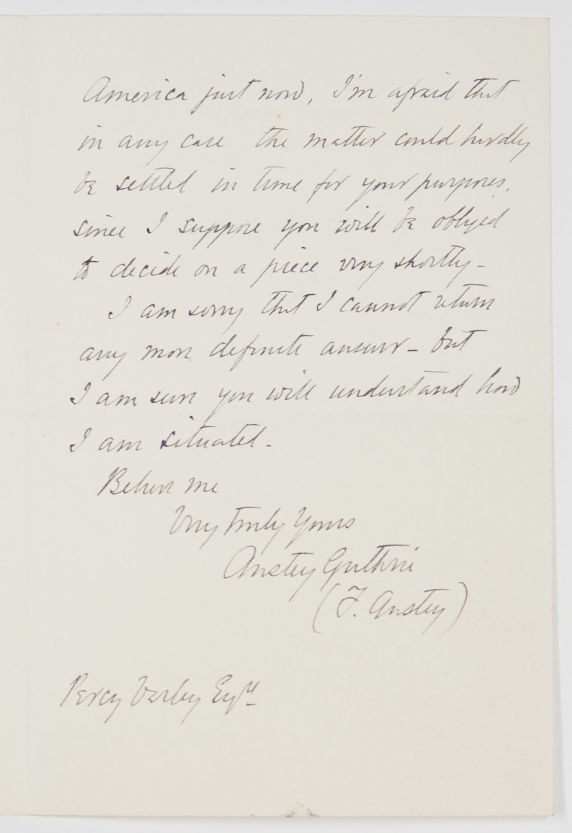 America just now, I'm afraid that
in any case the matter could hardly
be settled in time for your purposes,
since I suppose you will be obliged
to decide on a piece very shortly -
I am sorry that I cannot return
any more definite answer - but
I am sure you will understand how
I am situated.
Believe me
Very truly Yours
Anstey Guthrie
(F. Anstey)
Percy Esqre